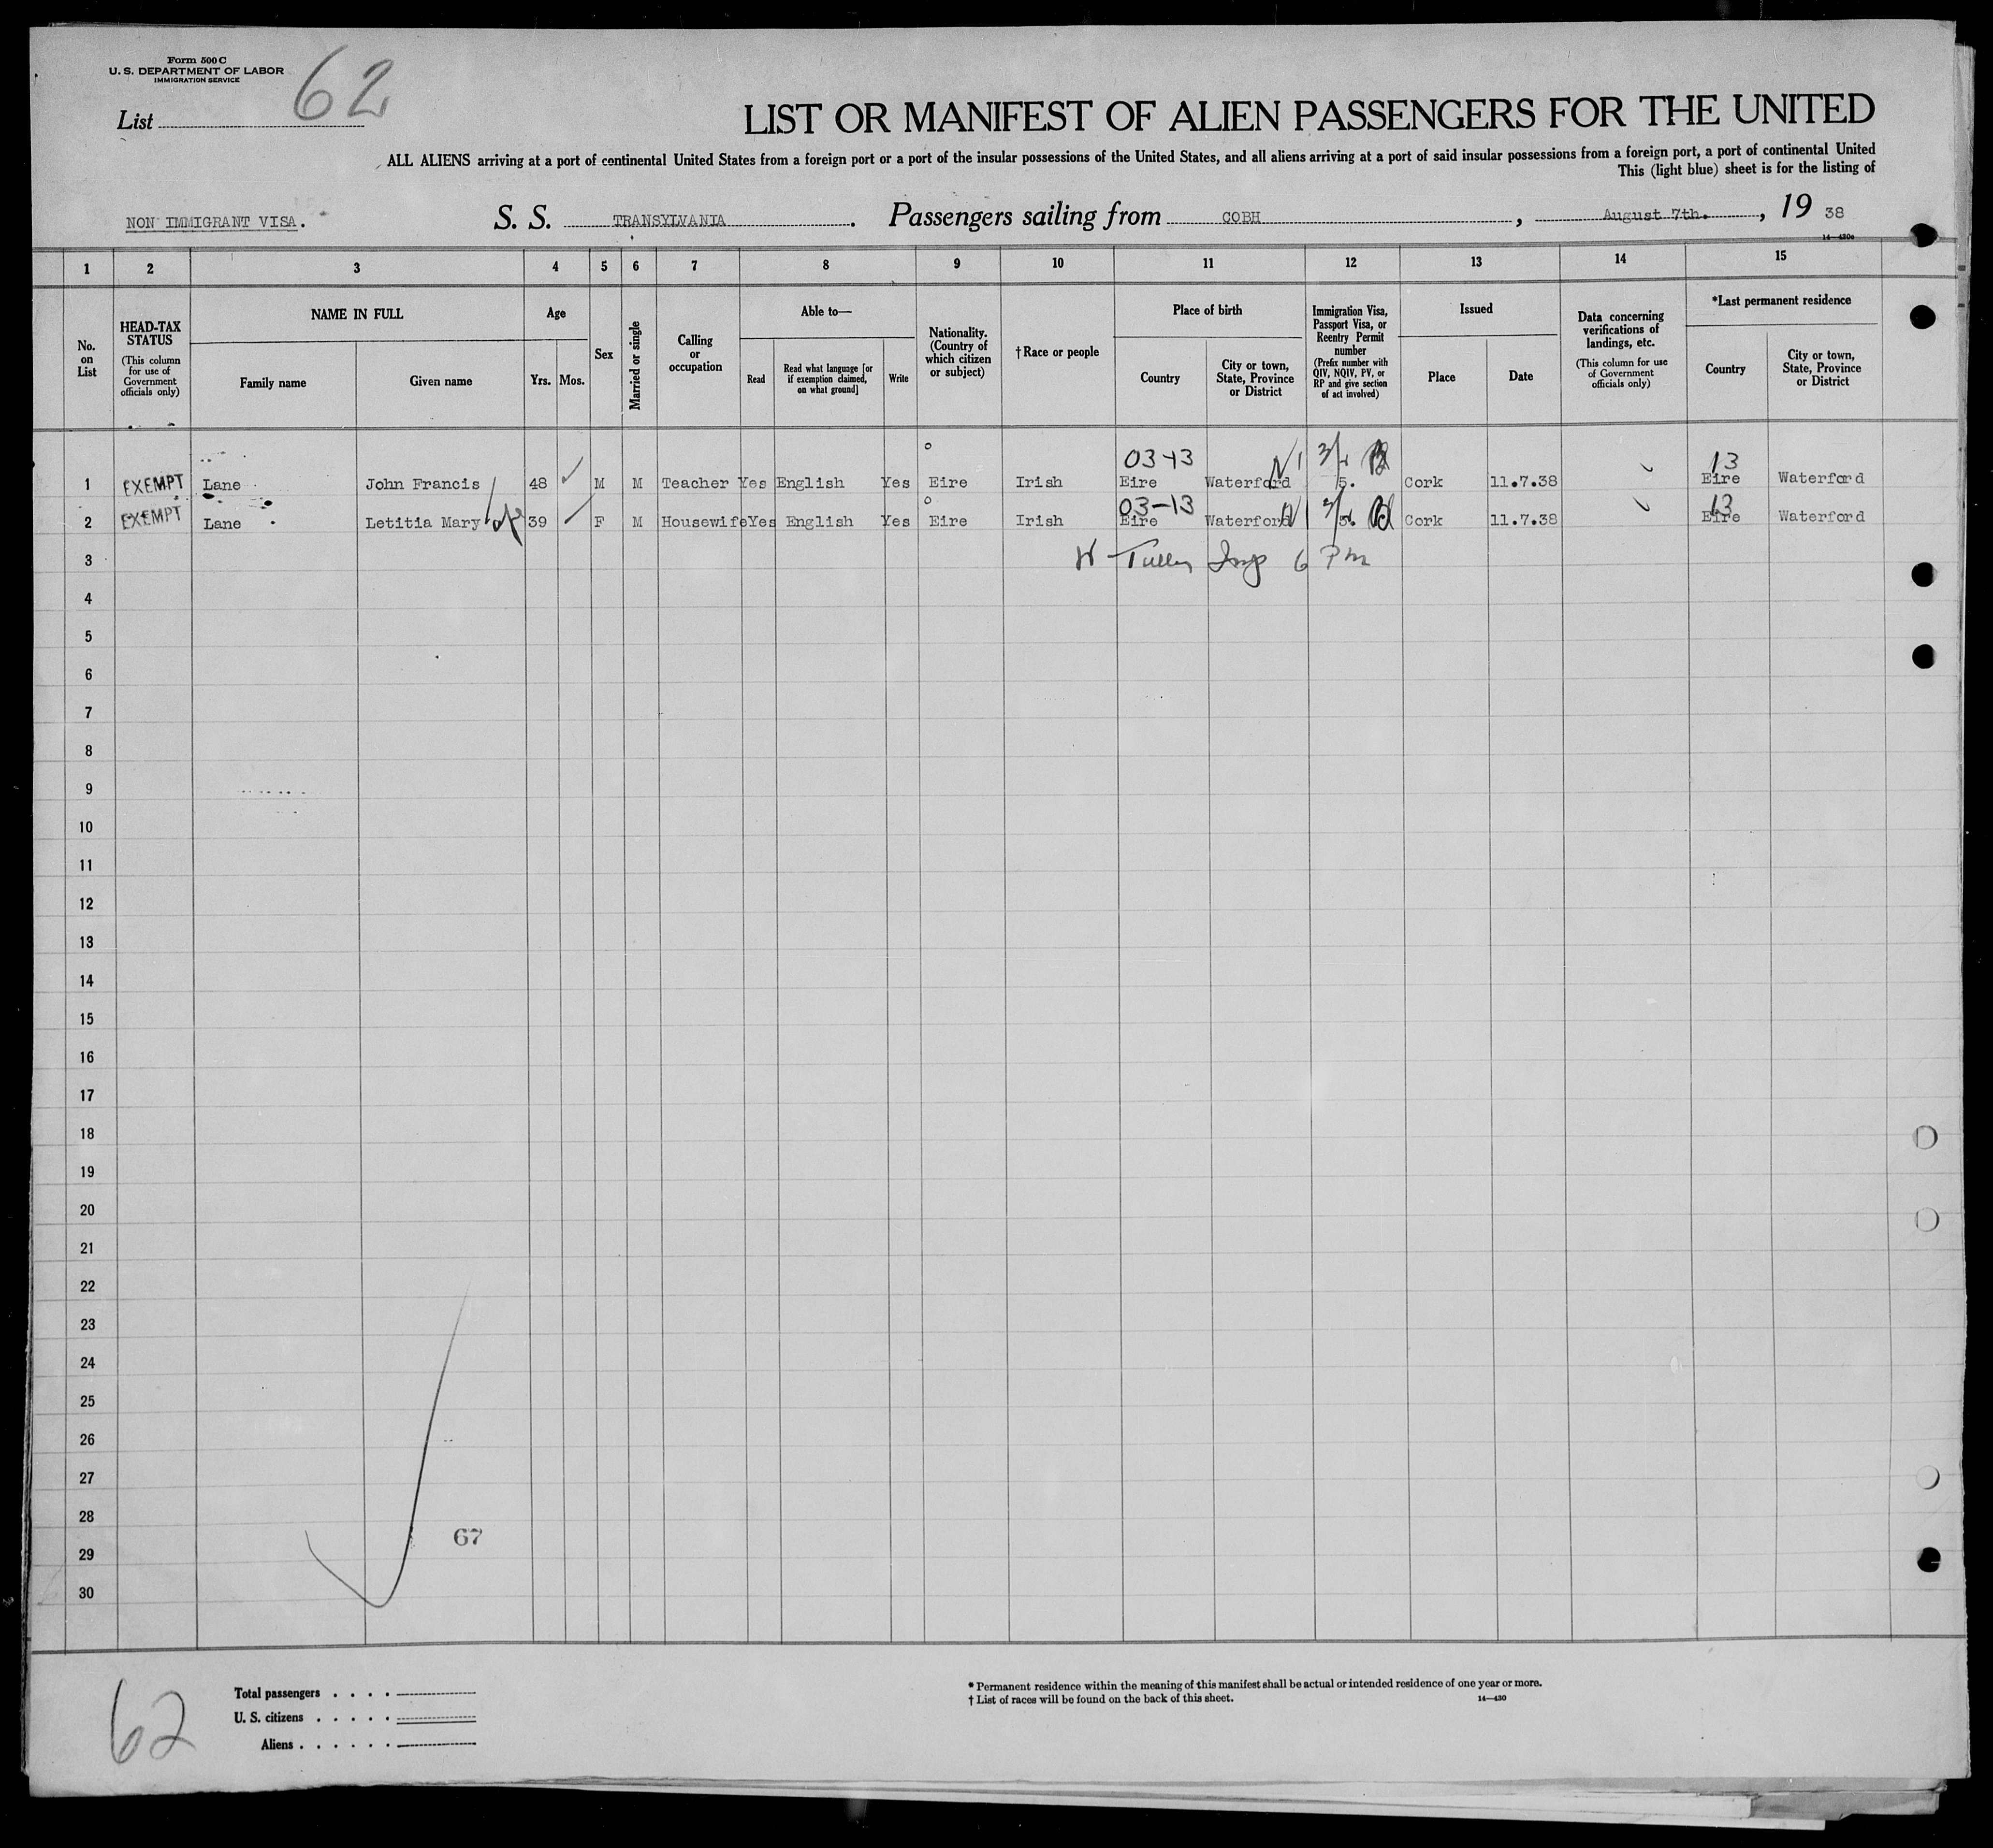 Form 500 C
U. S. DEPARTMENT OF LABOR
IMMIGRATION SERVICE
List 62
LIST OR MANIFEST OF ALIEN PASSENGERS FOR THE UNITED
ALL ALIENS arriving at a port of continental United States from a foreign port or a port of the insular possessions of the United States, and all aliens arriving at a port of said insular possessions from a foreign port, a port of continental United
This (light blue) sheet is for the listing of
NON IMMIGRANT VISA. S. S. TRANSYLVANIA. Passengers sailing from COBH, August 7th., 19 38
1 2 3 4 5 6 7 8 9 10 11 12 13 14 15
No. on List
HEAD-TAX STATUS (This column for use of Government officials only)
NAME IN FULL
Family name Given name
Age
Yrs. Mos.
Sex
Married or single
Calling or occupation
Able to—
Read Read what language [or if exemption claimed, on what ground] Write
Nationality. (Country of which citizen or subject)
† Race or people
Place of birth
Country City or town, State, Province or District
Immigration Visa, Passport Visa, or Reentry Permit number (Prefix number with QIV, NQIV, PV, or RP and give section of act involved)
Issued
Place Date
Data concerning verifications of landings, etc. (This column for use of Government officials only)
*Last permanent residence
Country City or town, State, Province or District
03-13 13
1 EXEMPT Lane John Francis 48 M M Teacher Yes English Yes Eire Irish Eire Waterford Cork 11.7.38 Eire Waterford
03-13 13
2 EXEMPT Lane Letitia Mary 39 F M Housewife Yes English Yes Eire Irish Eire Waterford Cork 11.7.38 Eire Waterford
3 Insp 6 PM
4
5
6
7
8
9
10
11
12
13
14
15
16
17
18
19
20
21
22
23
24
25
26
27
28
67
29
30
62
Total passengers . . . .
U. S. citizens . . . . .
Aliens . . . . . .
* Permanent residence within the meaning of this manifest shall be actual or intended residence of one year or more.
† List of races will be found on the back of this sheet. 14—430